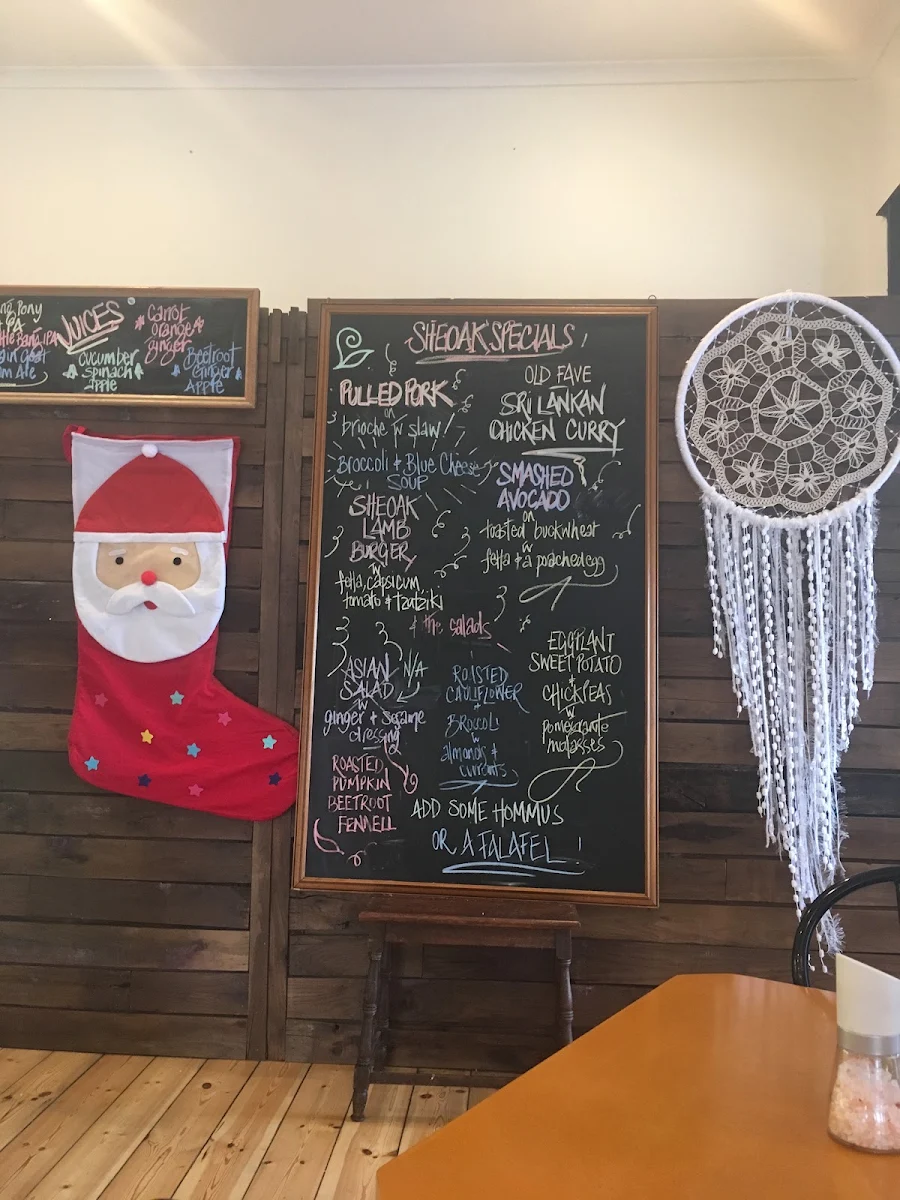 JUICES
Carrot
Orange &
ginger
cucumber
Spinach
Apple
Beetroot
Ginger
Apple
SHEOAK SPECIALS !
PULLED PORK
on
brioche w slaw!
Broccoli & Blue Cheese
SOUP
SHEOAK
LAMB
BURGER
w
fetta, capsicum
tomato & tzatziki
OLD FAVE
SRI LANKAN
CHICKEN CURRY
SMASHED
AVOCADO
on
toasted buckwheat
w
fetta & a poached egg
& the salads
ASIAN
SALAD
N/A
w
ginger & sesame
dressing
ROASTED
PUMPKIN
BEETROOT
FENNELL
ROASTED
CAULIFLOWER
+
BROCCOLI
w
almonds &
currants
EGGPLANT
SWEET POTATO
&
CHICKPEAS
w
Pomegranate
molasses
ADD SOME HOMMUS
OR A FALAFEL !